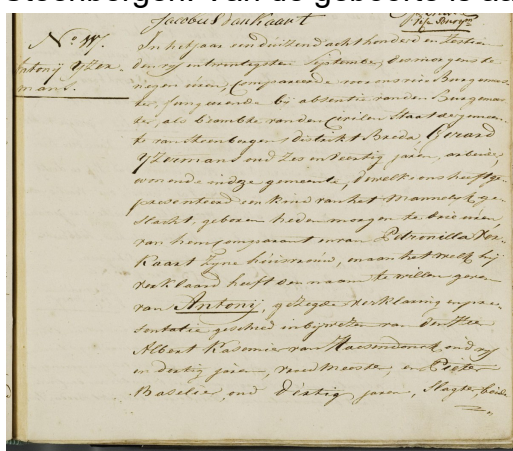 Jacobus Dankaart
No. 117.
Antonij IJzer-
mans.
In het jaar een duizend acht honderd en zestien
den vijf en twintigsten September, des morgens te
negen uren, Compareerde voor ons vice Burgemees-
ter, fungerende bij absentie van den Burgemees-
ter, als beambte van den Civilen Staat der gemeen-
te van Steenbergen, distrikt Breda, Gerard
IJzermans oud zes en veertig jaren, arbeider,
wonende in deze gemeente, dewelke ons heeft ge-
presenteerd een kind van het mannelijk ge-
slacht, geboren heden morgen te drie uren
van hem comparant en van Petronilla Ver-
kaart zijne huisvrouw, en aan het welk hij
verklaard heeft den naam te willen geven
van Antonij, gezegde verklaring en pre-
sentatie geschied in bijwezen van den Heer
Albert Kasemier van Haesendonck oud vijf
en dertig jaren, vroedmeester, en Pieter
Baselier, oud dertig jaren, slagter, beide